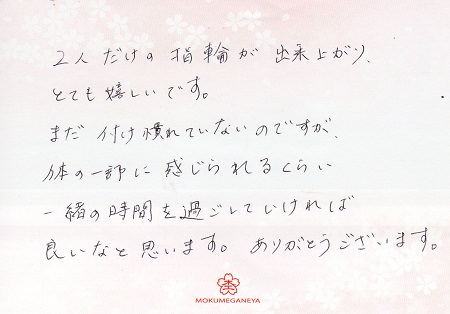 2人だけの指輪が出来上がり、
とても嬉しいです。
まだ付け慣れていないのですが、
体の一部に感じられるくらい
一緒の時間を過ごしていければ
良いなと思います。ありがとうございます。
MOKUMEGANEYA